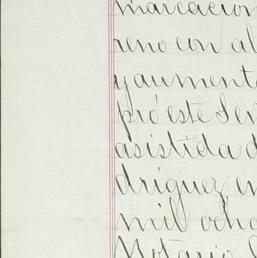 marcacion
reno con al
y aument
pró este Se
asistida d
driguez en
mil ocho
Notario